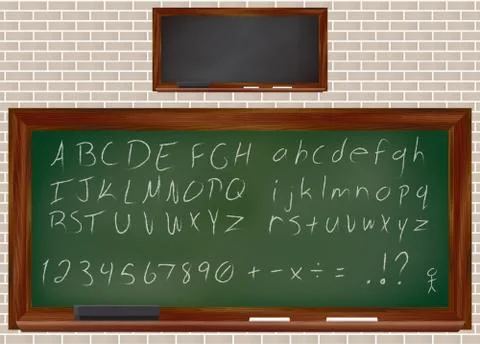 A B C D E F G H a b c d e f g h
I J K L M N O P Q i j k l m n o p q
R S T U V W X Y Z r s t u v w x y z
1 2 3 4 5 6 7 8 9 0 + - × ÷ = . ! ?